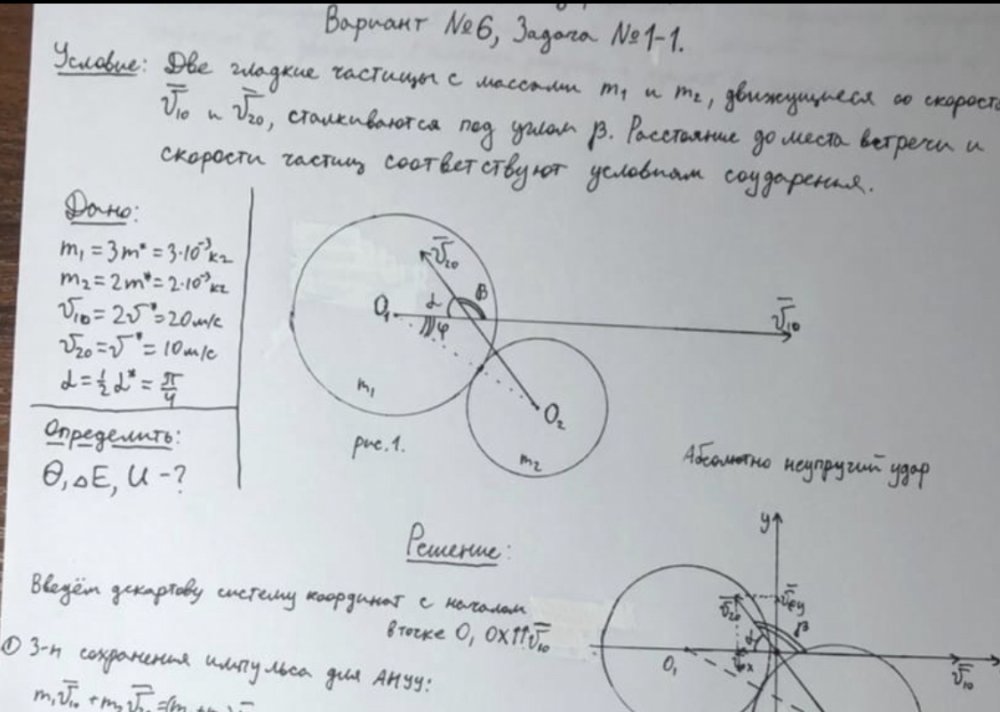 Вариант №6, Задача №1-1.
Условие: Две гладкие частицы с массами m₁ и m₂, движущиеся со скорост
v̅₁₀ и v̅₂₀, сталкиваются под углом β. Расстояние до места встречи и
скорости частиц соответствуют условиям соударения.
Дано:
m₁ = 3m* = 3·10⁻³ кг
m₂ = 2m* = 2·10⁻³ кг
v₁₀ = 2v* = 20 м/с
v₂₀ = v* = 10 м/с
α = ½ α* = π/4
Определить:
θ, ΔE, U - ?
v̅₂₀
α
β
O₁
φ
v̅₁₀
m₁
O₂
m₂
рис. 1.
Абсолютно неупругий удар
Решение:
Введём декартову систему координат с началом
в точке O, OX↑↑v̅₁₀
y
v̅₂₀
β
α
O₁
v̅₁₀
① З-н сохранения импульса для АНУУ:
m₁v̅₁₀ + m₂v̅₂₀ = (m